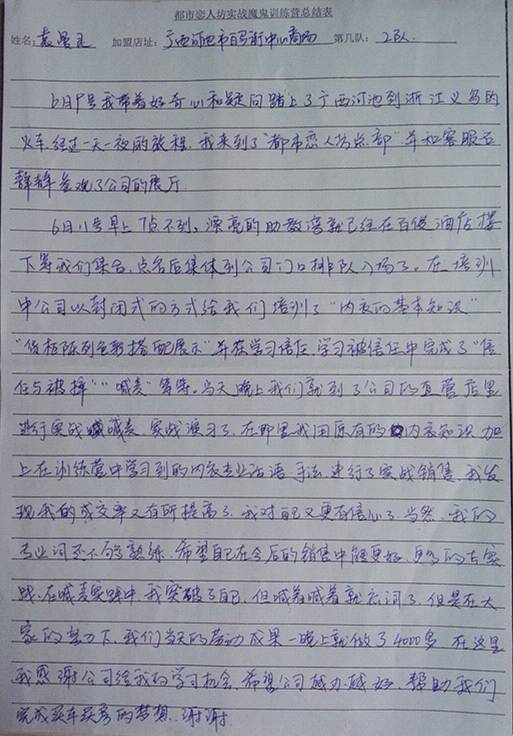 都市恋人坊实战魔鬼训练营总结表
姓名: 加盟店址: 广西河池市百弓街中心商场 第几队: 2队.
6月9号我带着好奇心和疑问踏上了广西河池到浙江义乌的
火车,经过一天一夜的旅程,我来到了“都市恋人坊总部”并和客服石
静静参观了公司的展厅.
6月11号早上7点不到,漂亮的助教湾就已经在百俊酒店楼
下等我们集合,点名后集体到公司门口排队入场了。在培训
中公司以封闭式的方式给我们培训了“内衣的基本知识”
“货柜陈列色彩搭配展示”并在学习信任,学习被信任中完成了“信
任与被摔”“喊麦”等等。当天晚上我们就到了公司的直营店里
进行实战喊麦,实战演习了,在那里我用原有的内衣知识加
上在训练营中学习到的内衣专业话语,手法,进行了实战销售,我发
现我的成交率又有所提高了,我对自己又更有信心了,当然,我的
专业词还不够熟练,希望自己在今后的销售中能更好,更多的去实
战,在喊麦实践中,我突破了自己,但喊着喊着就忘词了,但是在大
家的努力下,我们当天的劳动成果一晚上就做了4000多,在这里
我感谢公司给我的学习机会,希望公司越办越好,帮助我们
完成买车买房的梦想,谢谢.